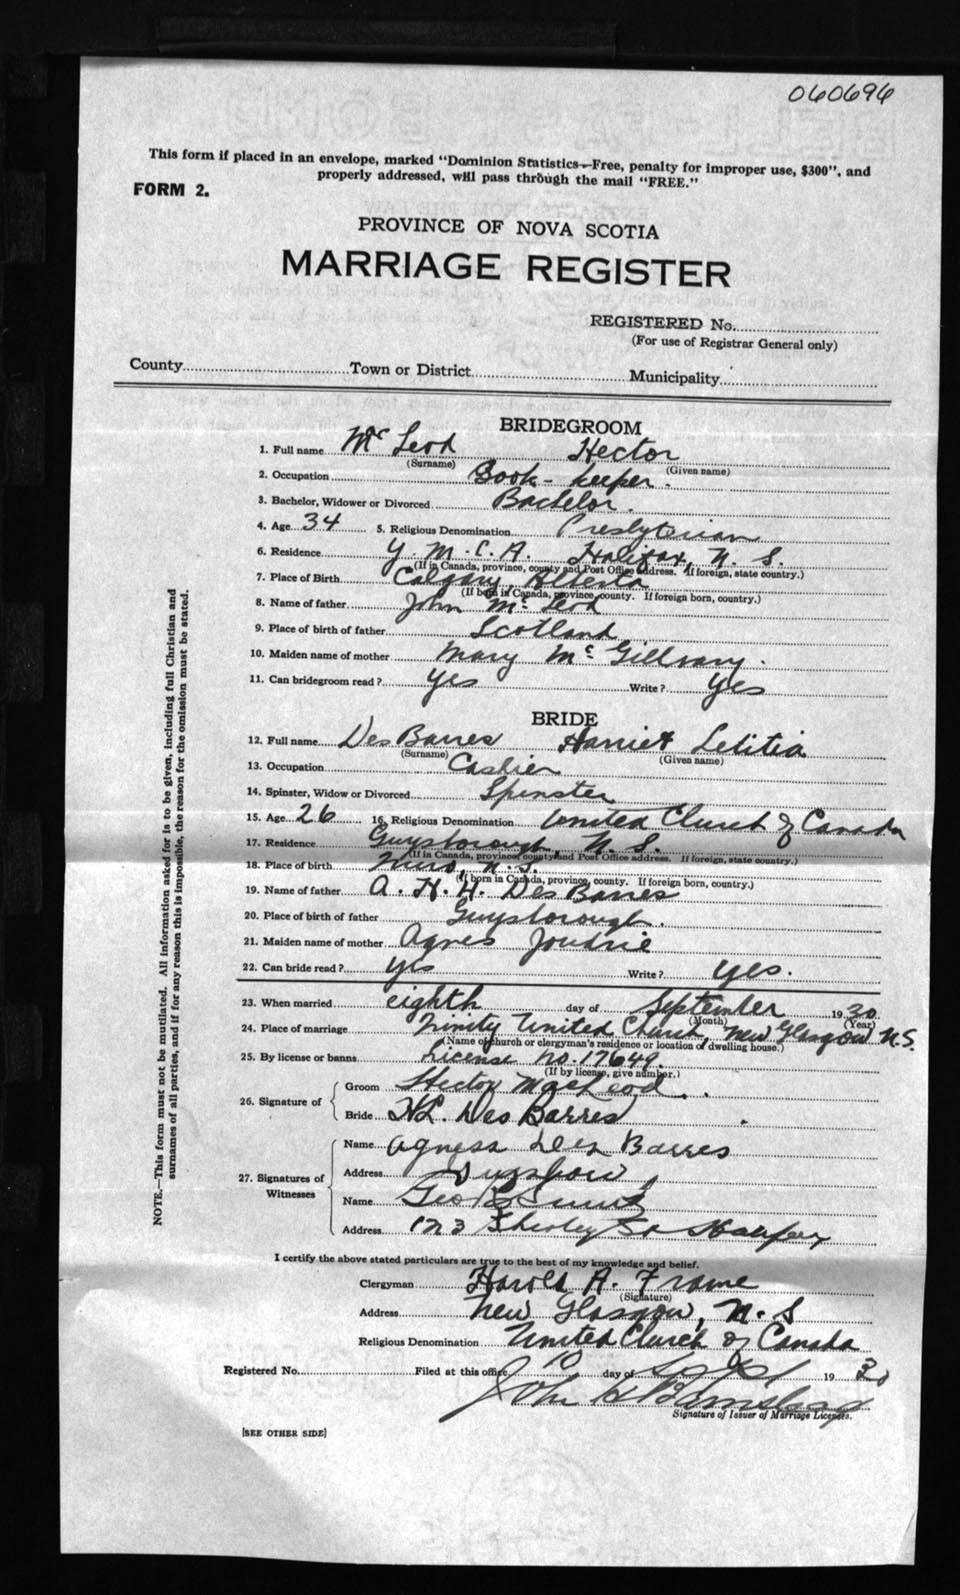 060696
This form if placed in an envelope, marked "Dominion Statistics—Free, penalty for improper use, $300", and
properly addressed, will pass through the mail "FREE."
FORM 2.
PROVINCE OF NOVA SCOTIA
MARRIAGE REGISTER
REGISTERED No.
(For use of Registrar General only)
County Town or District Municipality
BRIDEGROOM
1. Full name Mc Leod Hector
(Surname) (Given name)
2. Occupation Book-keeper.
3. Bachelor, Widower or Divorced Bachelor.
4. Age 34 5. Religious Denomination Presbyterian
6. Residence Y.M.C.A. Halifax, N.S.
(If in Canada, province, county and Post Office address. If foreign, state country.)
7. Place of Birth Calgary, Alberta
(If born in Canada, province, county. If foreign born, country.)
8. Name of father John Mc Leod
9. Place of birth of father Scotland
10. Maiden name of mother Mary Mc Gillvary.
11. Can bridegroom read? Yes Write? Yes
BRIDE
12. Full name Des Barres Harriet Letitia
(Surname) (Given name)
13. Occupation Cashier
14. Spinster, Widow or Divorced Spinster
15. Age 26 16. Religious Denomination United Church of Canada
17. Residence Guysborough, N.S.
(If in Canada, province, county and Post Office address. If foreign, state country.)
18. Place of birth Truro, N.S.
(If born in Canada, province, county. If foreign born, country.)
19. Name of father A. H. H. Des Barres
20. Place of birth of father Guysborough.
21. Maiden name of mother Agnes Joudrie
22. Can bride read? Yes Write? Yes.
23. When married eighth day of September 1930
(Month) (Year)
24. Place of marriage Trinity United Church, New Glasgow N.S
(Name of church or clergyman's residence or location of dwelling house.)
25. By license or banns License no. 17649.
(If by license, give number.)
26. Signature of
Groom Hector MacLeod.
Bride H.L. Des Barres
27. Signatures of Witnesses
Name Agness Des Barres
Address
Name Geo
Address 123 St Halifax
I certify the above stated particulars are true to the best of my knowledge and belief.
Clergyman Harold A. Frame
(Signature)
Address New Glasgow, N.S
Religious Denomination United Church of Canada
Registered No. Filed at this office 10 day of Sept 1930
John H
Signature of Issuer of Marriage Licences.
[SEE OTHER SIDE]
NOTE.—This form must not be mutilated. All information asked for is to be given, including full Christian and
surnames of all parties, and if for any reason this is impossible, the reason for the omission must be stated.